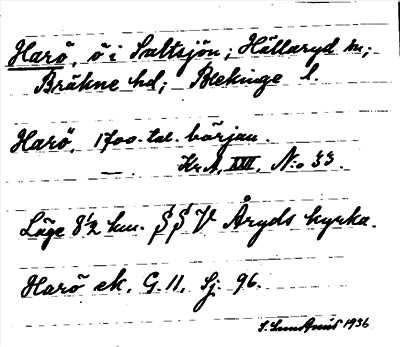 Harö, ö i Saltsjön; Hällaryd sn;
Bräkne hd; Blekinge l.
Harö, 1700-tal. början.
— . Kr. A, XXII, N:o 33.
Läge 8½ km. SSV Åryds kyrka.
Harö ek. G. 11, Sj. 96.
1936